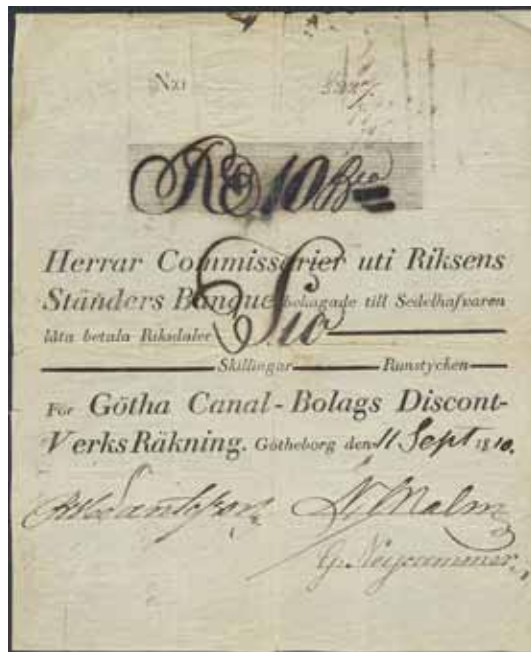 No
10 Bco
Herrar Commissarier uti Riksens
Ständers Banque behagade till Sedelhafvaren
låta betala Riksdaler Tio
Skillingar Runstycken
För Götha Canal-Bolags Discont-
Verks Räkning. Götheborg den 11 Sept 1810.
Malm